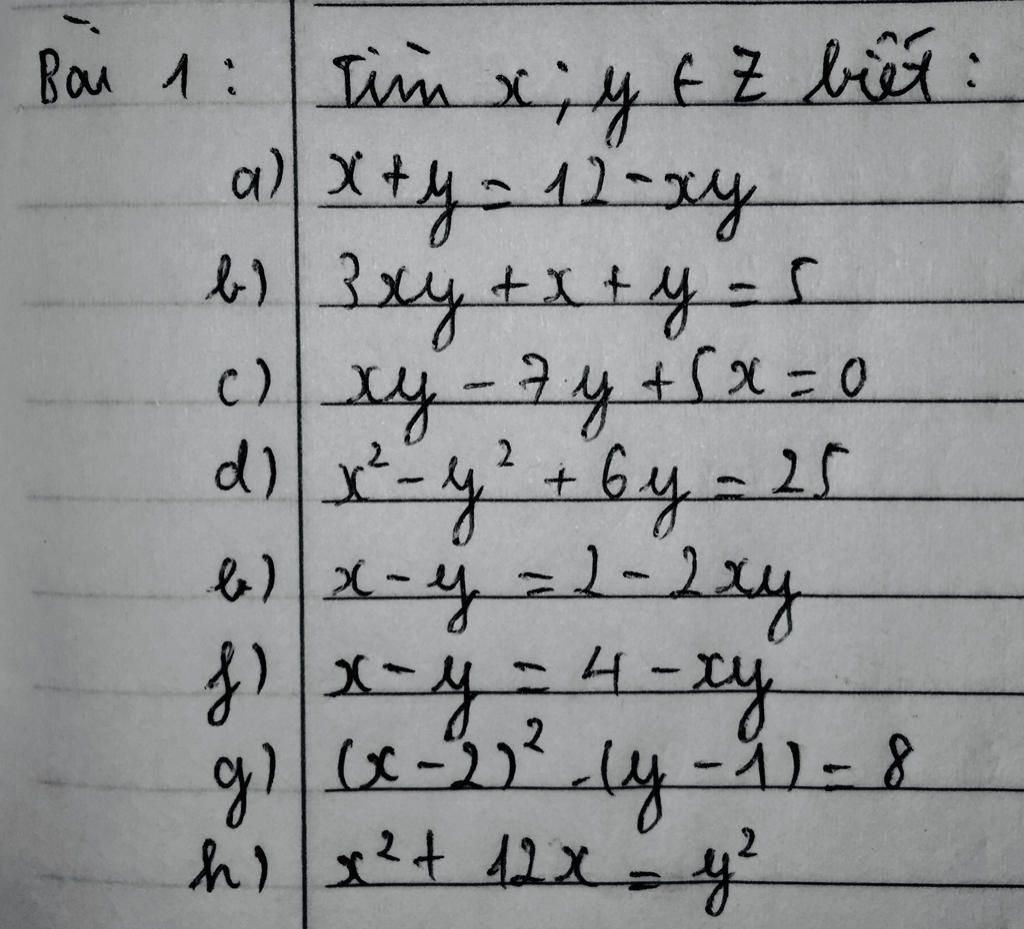 Bài 1: Tìm x; y ∈ Z biết:
a) x + y = 12 - xy
b) 3xy + x + y = 5
c) xy - 7y + 5x = 0
d) x² - y² + 6y = 25
e) x - y = 2 - 2xy
f) x - y = 4 - xy
g) (x - 2)² . (y - 1) = 8
h) x² + 12x = y²